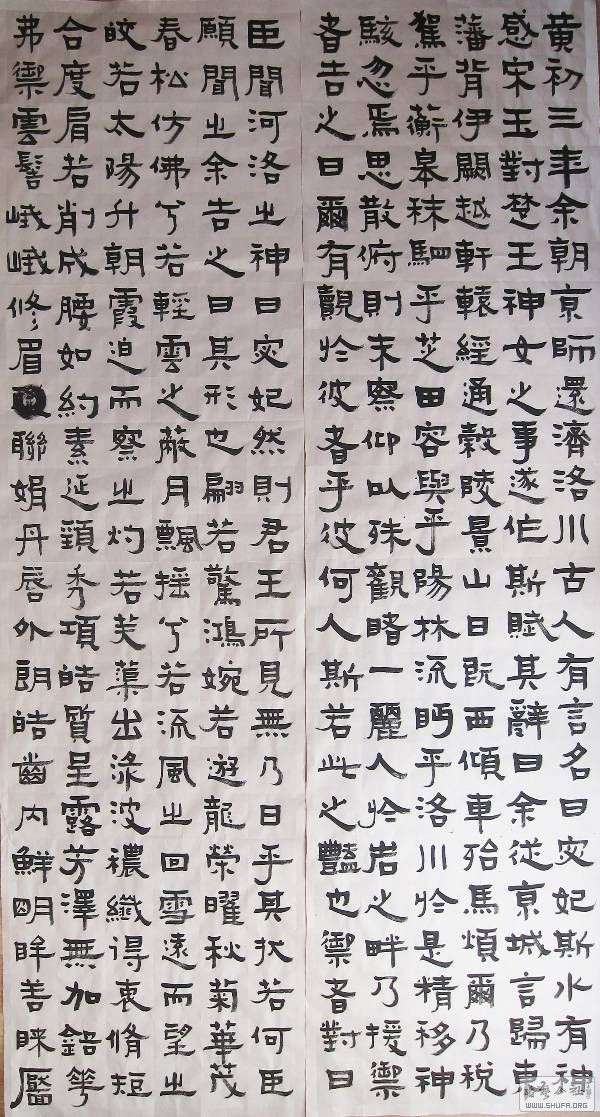 黄初三年余朝京師還濟洛川古人有言名曰宓妃斯水有神
感宋玉對楚王神女之事遂作斯賦其辭曰余從京城言歸東
藩背伊闕越軒轅經通穀陵景山日既西傾車殆馬煩爾乃税
駕乎蘅皋秣駟乎芝田容與乎陽林流眄乎洛川於是精移神
駭忽焉思散俯則未察仰以殊觀睹一麗人於岩之畔乃援禦
者告之曰爾有覿於彼者乎彼何人斯若此之豔也禦者對曰
臣聞河洛之神曰宓妃然則君王所見無乃日乎其状若何臣
願聞之余告之曰其形也翩若驚鴻婉若遊龍榮曜秋菊華茂
春松仿佛兮若輕雲之蔽月飄搖兮若流風之回雪遠而望之
皎若太陽升朝霞迫而察之灼若芙蕖出渌波穠纖得衷脩短
合度肩若削成腰如約素延頸秀項皓質呈露芳澤無加鉛華
弗禦雲髻峨峨修眉聯娟丹唇外朗皓齒内鮮明眸善睞靨
WWW.SHUFA.ORG